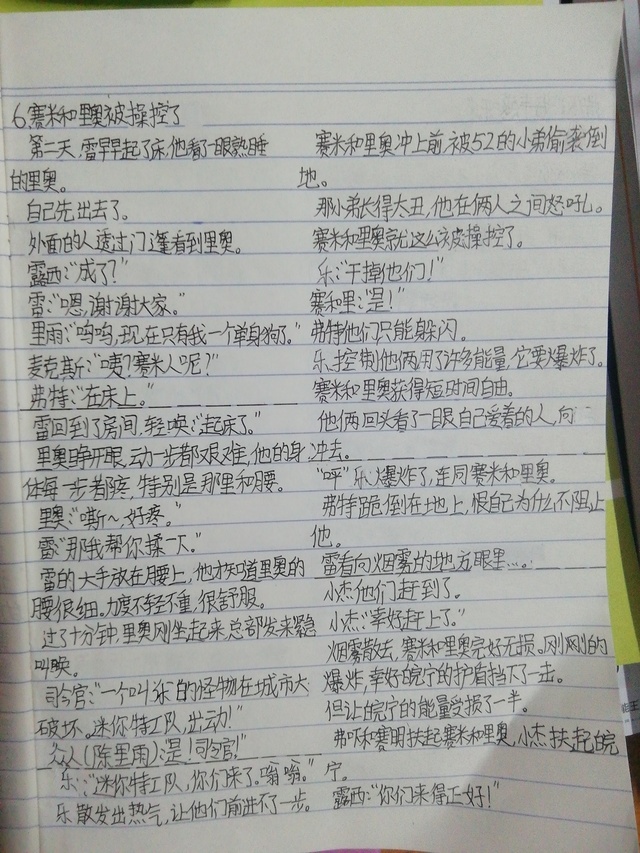 6.赛米和里奥被操控了
第二天,雷早早起了床,他看了一眼熟睡
的里奥。
自己先出去了。
外面的人透过门逢看到里奥。
露西:“成了?”
雷:“嗯,谢谢大家。”
里雨:“呜呜,现在只有我一个单身狗了。”
麦克斯:“咦?赛米人呢?”
弗特:“在床上。”
雷回到了房间,轻唤:“起床了。”
里奥睁开眼,动一步都艰难,他的身
体每一步都疼,特别是那里和腰。
里奥:“嘶~,好疼。”
雷:“那我帮你揉一下。”
雷的大手放在腰上,他才知道里奥的
腰很细。力度不轻不重,很舒服。
过了十分钟,里奥刚坐起来,总部发来紧急
叫唤。
司令官:“一个叫‘乐’的怪物在城市大
破坏。迷你特工队,出动!”
众人(除里雨):是!司令官!”
乐:“迷你特工队,你们来了。嗡嗡。”
乐散发出热气,让他们前进不了一步。
赛米和里奥冲上前,被52的小弟偷袭倒
地。
那小弟长得太丑,他在俩人之间怒吼。
赛米和里奥就这么被操控了。
乐:“干掉他们!”
赛和里:“是!”
弗特他们只能躲闪。
乐控制他俩用了许多能量,它要爆炸了。
赛米和里奥获得短时间自由。
他俩回头看了一眼自己爱着的人,向
冲去。
“呯”乐爆炸了,连同赛米和里奥。
弗特跪倒在地上,恨自己为什么不阻止
他。
雷看向烟雾的地方,眼里……。
小杰他们赶到了。
小杰:“幸好赶上了。”
烟雾散去,赛米和里奥完好无损。刚刚的
爆炸,幸好的皖宁的护盾挡下了一击。
但让皖宁的能量受损了一半。
弗吓和赛明扶起赛米和里奥,小杰扶起皖
宁。
露西:“你们来得正好!”